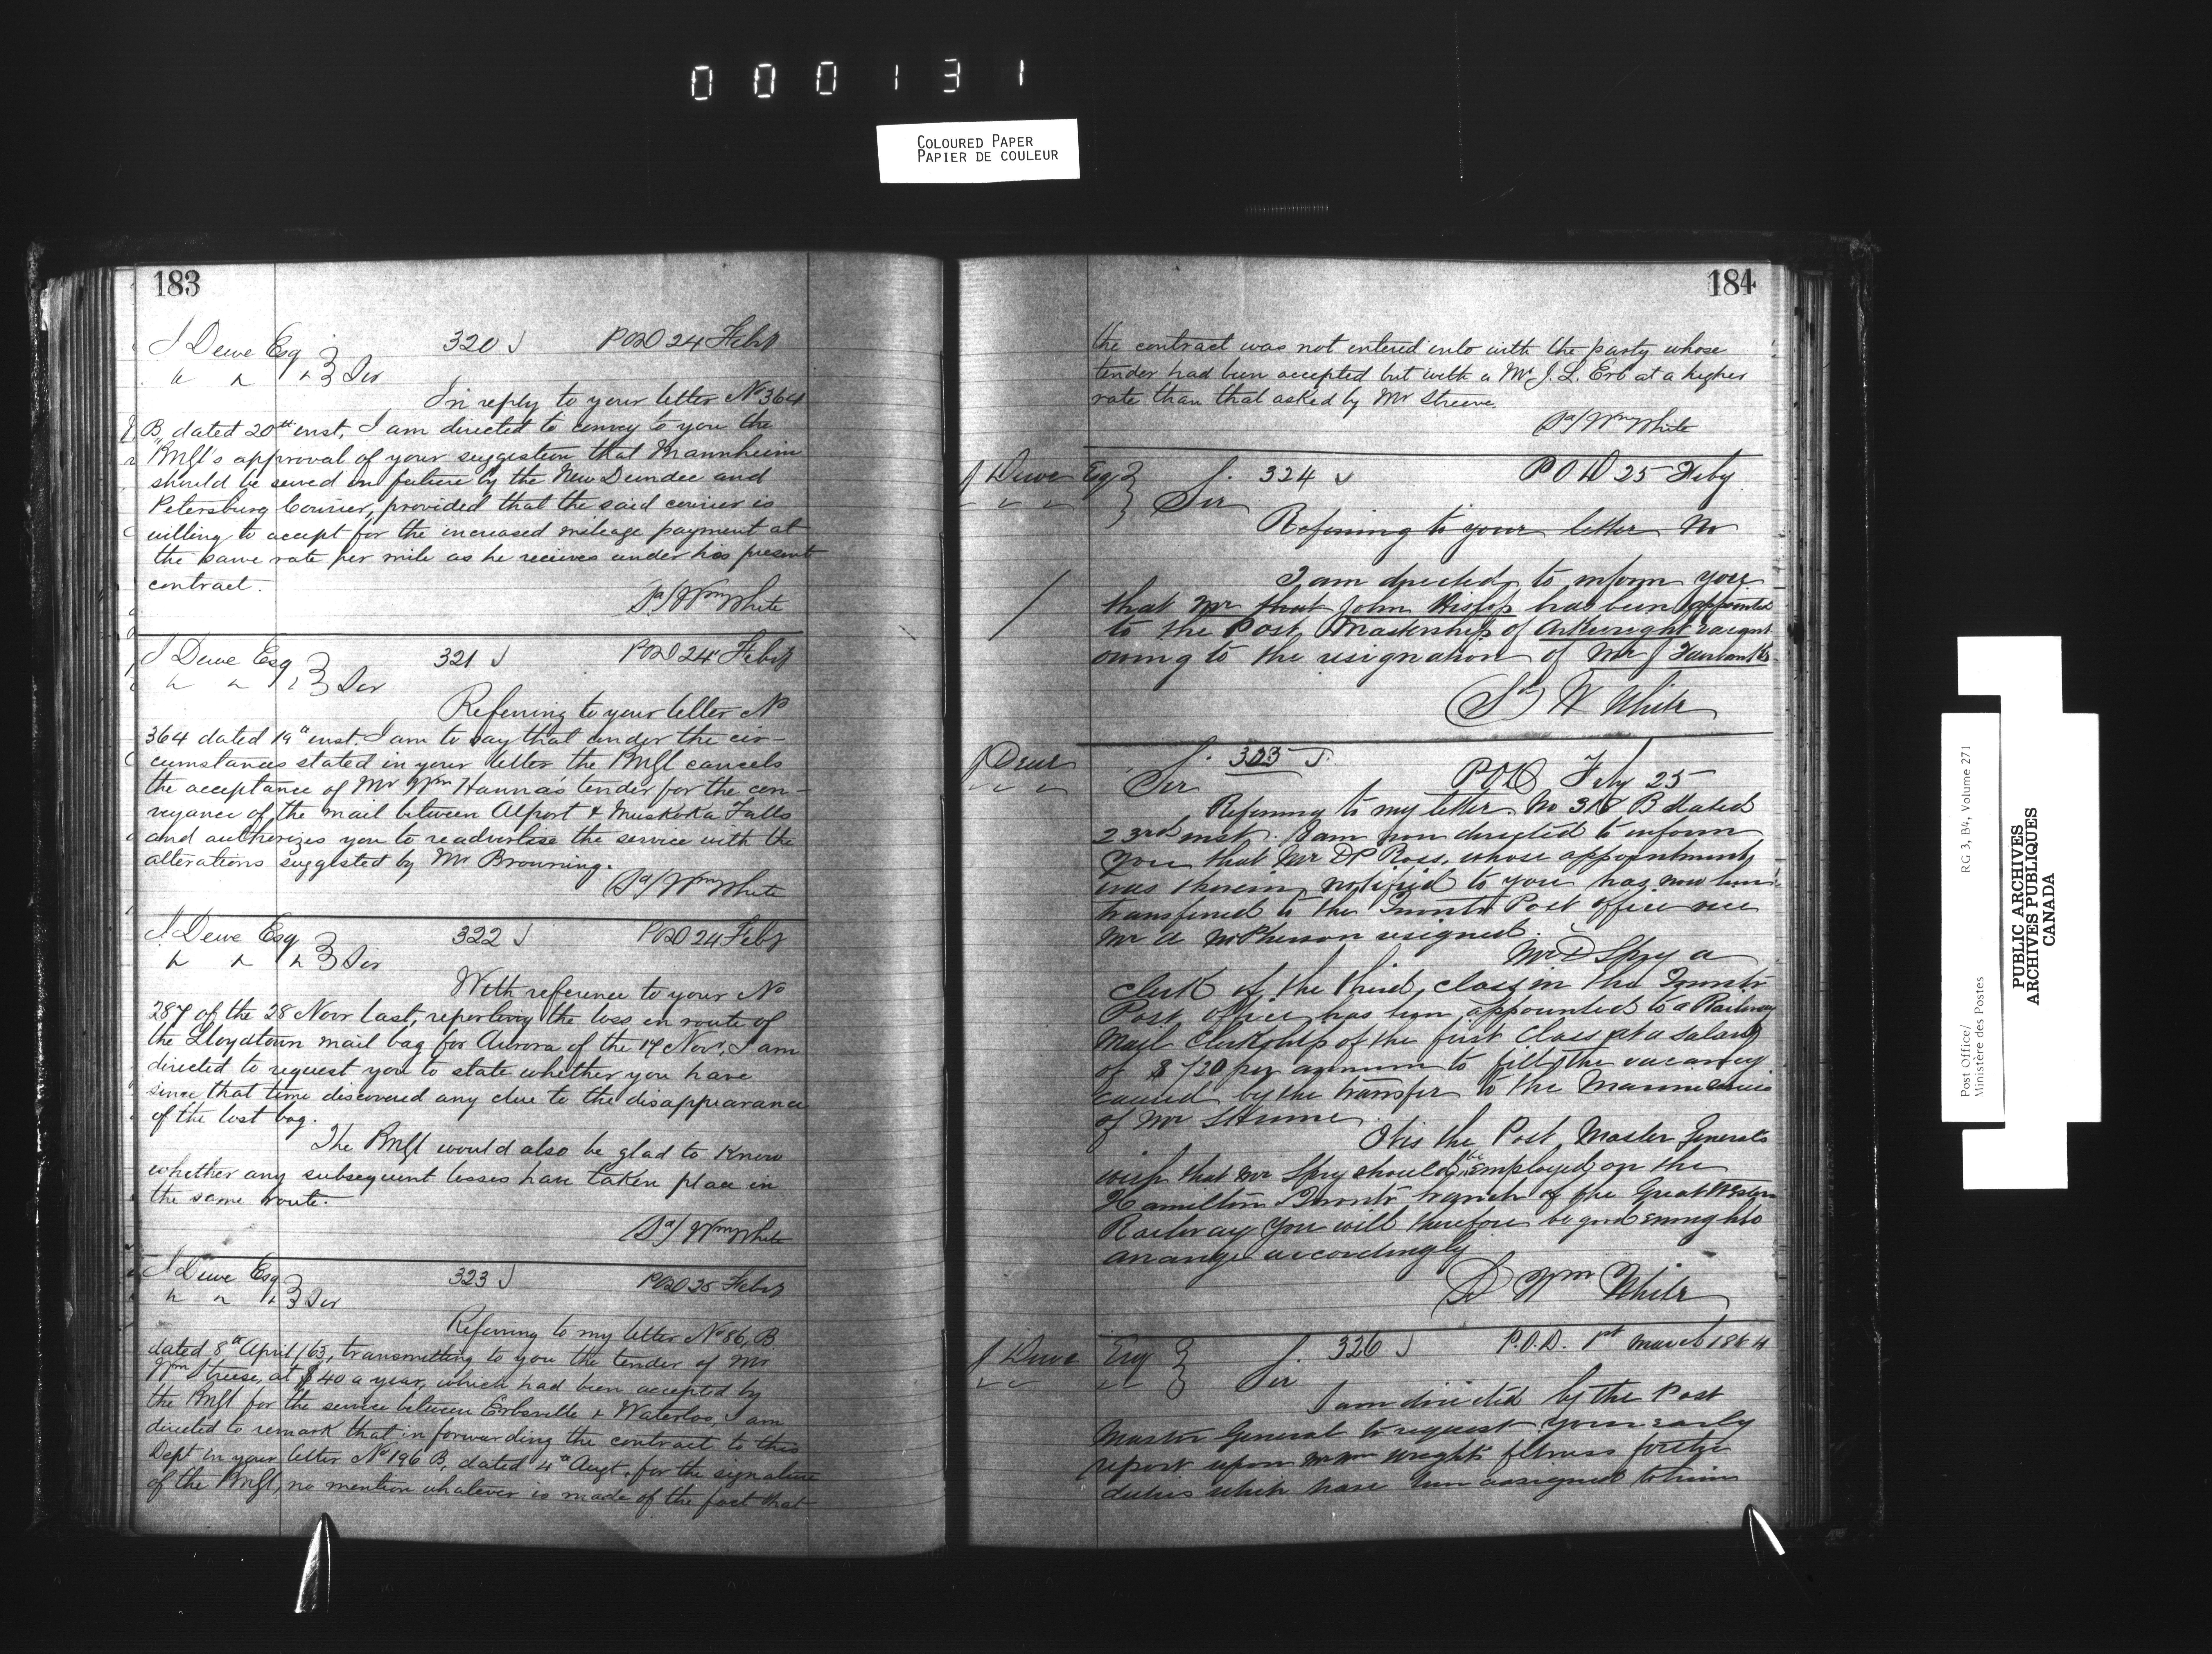 000131
COLOURED PAPER
PAPIER DE COULEUR
183
J Dewe Esq 320 J POD 24 Feby
" " " Sir
In reply to your letter No 364
B, dated 20th inst, I am directed to convey to you the
PMGl's approval of your suggestion that Mannheim
should be served in future by the New Dundee and
Petersburg Courier, provided that the said courier is
willing to accept for the increased mileage payment at
the same rate per mile as he receives under his present
contract.
Sd/ Wm White
J Dewe Esq 321 J POD 24 Feby
" " " Sir
Referring to your letter No
364 dated 19th inst. I am to say that under the cir-
cumstances stated in your letter the PMGl cancels
the acceptance of Mr Wm Hanna's tender for the con-
veyance of the mail between Alport & Muskoka Falls
and authorizes you to readvertise the service with the
alterations suggested by Mr Browning.
Sd/ Wm White
J Dewe Esq 322 J POD 24 Feby
" " " Sir
With reference to your No
287 of the 28 Novr last, reporting the loss en route of
the Lloydtown mail bag for Aurora of the 17 Novr, I am
directed to request you to state whether you have
since that time discovered any clue to the disappearance
of the lost bag.
The PMGl would also be glad to know
whether any subsequent losses have taken place in
the same route.
Sd/ Wm White
J Dewe Esq 323 J POD 25 Feby
" " " Sir
Referring to my letter No 86, B
dated 8th April /63, transmitting to you the tender of Mr
Wm at $40 a year, which had been accepted by
the PMGl for the service between Erbsville & Waterloo, I am
directed to remark that in forwarding the contract to this
Dept in your letter No 196 B, dated 4th Augt, for the signature
of the PMGl, no mention whatever is made of the fact that
184
the contract was not entered into with the party whose
tender had been accepted but with a Mr J. L. Erb at a higher
rate than that asked by Mr
Sd/ Wm White
J Dewe Esq J. 324 J POD 25 Feby
" " " Sir
Referring to your letter No
I am directed to inform you
that Mr that John Hislop has been appointed
to the Post Mastership of Arkwright vacant
owing to the resignation of Mr J
Sd W White
J Dewe J. 325 J.
" " " Sir POD Feby 25
Referring to my letter No 318 B dated
23rd inst. I am now directed to inform
you that Mr D P Ross, whose appointment
was therein notified to you has now been
transferred to the Toronto Post office vice
Mr A McPherson resigned.
Mr D Spry a
clerk of the third class in the Toronto
Post office has been appointed to a Railway
Mail Clerkship of the first Class at a salary
of $720 per annum to fill the vacancy
caused by the transfer to the Marine service
of Mr S Hume
It is the Post Master General's
wish that Mr Spry should be employed on the
Hamilton Toronto branch of the Great Western
Railway you will therefore be good enough to
arrange accordingly
Sd Wm White
J Dewe Esq J. 326 J P.O.D. 1st March 1864
" " " Sir
I am directed by the Post
Master General to request your early
report upon Mr Wm Wright's fitness for the
duties which have been assigned to him
Post Office/ RG 3, B4, Volume 271
Ministère des Postes
PUBLIC ARCHIVES
ARCHIVES PUBLIQUES
CANADA